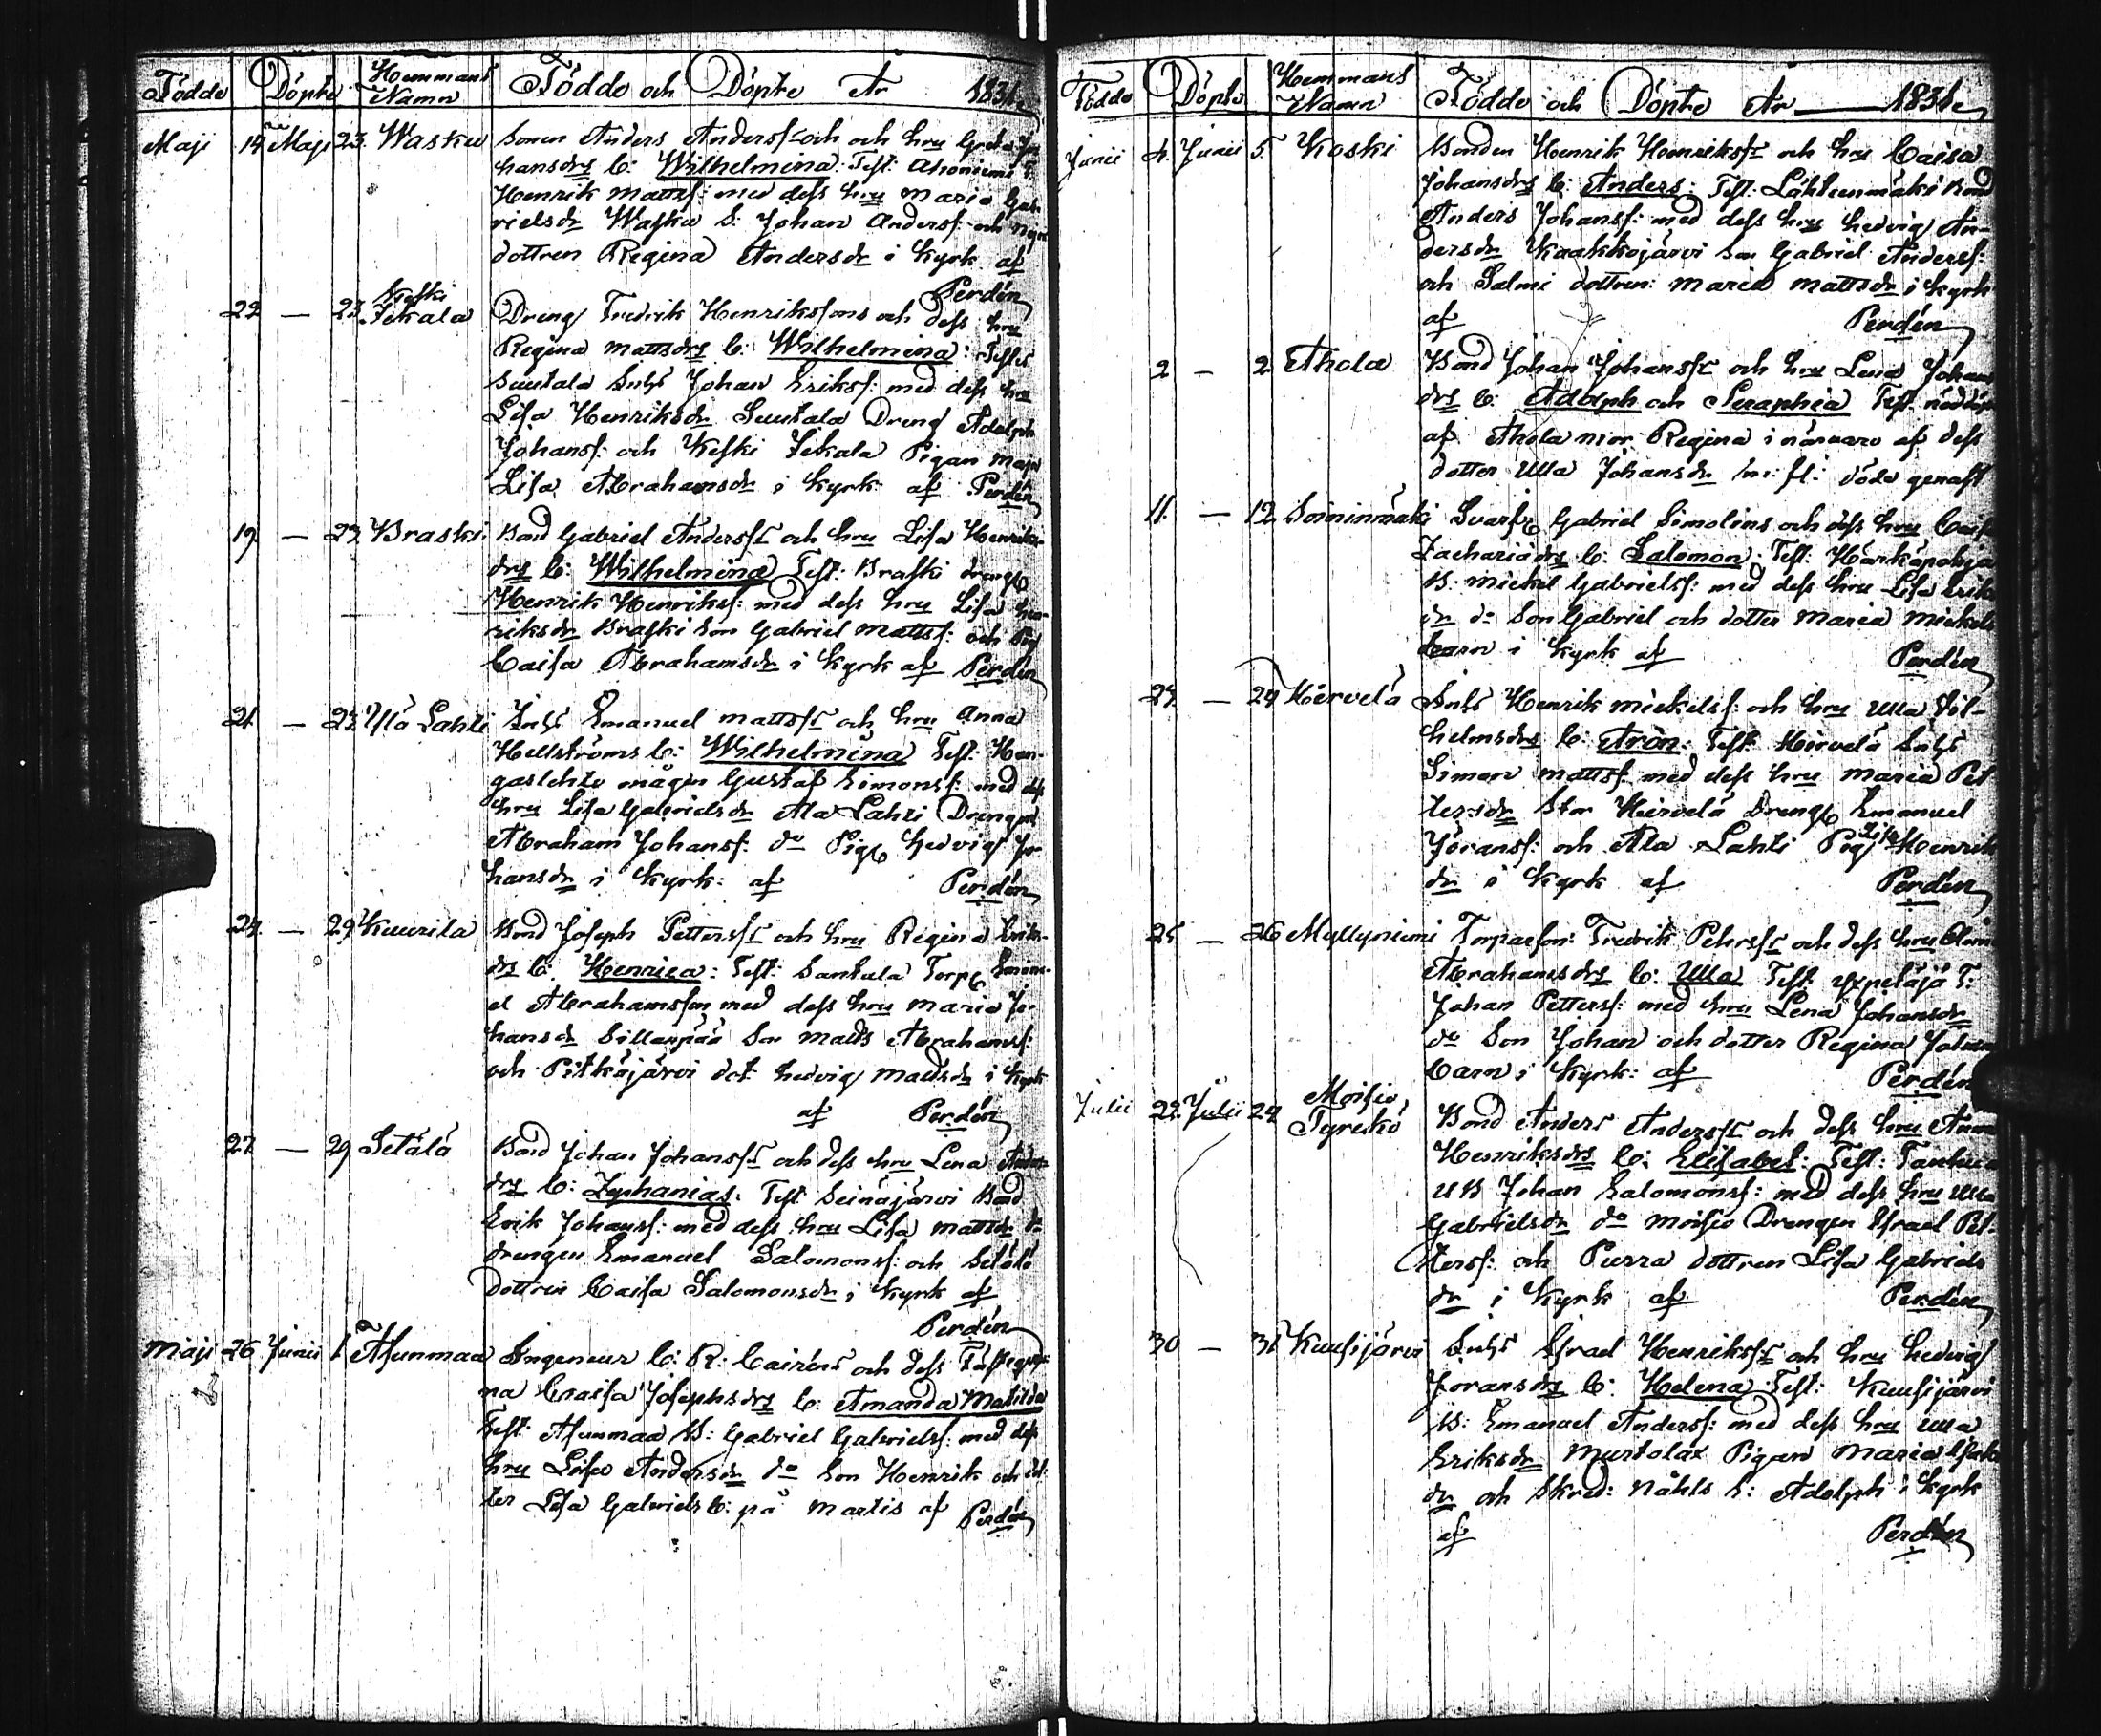 Födde Döpte Hemmans Namn Födde och Döpte År 1831
Maji 14 Maji 23. Wasku Sonen Anders Anderss: och hru Greta Jo
hansdrs b: Wilhelmina. Test: Ahoniemi
Henrik Mattss: med dess hru Maria Gab
rielsdr Wasku S: Johan Anderss: och
dottren Regina Andersdr i Kyrk. af
Perdén
22 — 23 Keski Jekala Dreng Fredrik Henrikssons och dess hru
Regina Mattsdrs b: Wilhelmina: Test:
Suutala Inhs Johan Erikss: med dess hru
Lisa Henriksdr Suutala Dreng Adolph
Johanss: och Keski Jekala Pigan Maja
Lisa Abrahamsdr i Kyrk: af Perdén
19 — 23 Braski Bond Gabriel Anderss: och hru Lisa Henriks
drs b: Wilhelmina Test: Braski
Henrik Henrikss: med dess hru Lisa Hen
riksdr Braski Son Gabriel Mattss: och Pig
Caisa Abrahamsdr i Kyrk af Perdén
21 — 23 Ylä Lahti Inhs Emanuel Mattss: och hru Anna
Hellströms b: Wilhelmina Test: Han
gaslehto mågen Gustaf Simonss: med dess
hru Lisa Gabrielsdr Ala Lahti Drengen
Abraham Johanss: do Pig Hedvig Jo
hansdr i Kyrk: af Perdén
24 — 29 Kuurila Bond Joseph Petterss: och hru Regina Eriks
drs b: Henrica: Test: Santala Torp
el Abrahamsson med dess hru Maria Jo
hansdr Sillanpää Son Matts Abrahamss:
och Pitkäjärvi dot: Hedvig Mattsdr i Kyrk
af Perdén
27 — 29 Setälä Bond Johan Johanss: och dess hru Lena Anders
drs b: Zephanias: Test: Seinäjärvi Bond
Erik Johanss: med dess hru Lisa Mattsdr do
drengen Emanuel Salomonss: och Setälä
dottren Caisa Salomonsdr i Kyrk af
Perdén
Maji 26 Junii 1 Asunmaa Ingeneur C: R: Cairéns och dess
na Caisa Josephsdrs b: Amanda Matilda
Test: Asunmaa B: Gabriel Gabrielss: med dess
hru Lisa Andersdr do Son Henrik och dot
ter Lisa Gabriels b: på Martis af Perdén
Födde Döpte Hemmans Namn Födde och Döpte År 1831
Junii 4. Junii 5. Koski Bonden Henrik Henrikss: och hru Caisa
Johansdrs b: Anders: Test: Löhteenmäki Bond
Anders Johanss: med dess hru Hedvig An-
dersdr Kaakkojärvi Son Gabriel Anderss:
och Salmi dottren: Maria Mattsdr i Kyrk
af Perdén
2 — 2 Ahola Bond Johan Johanss: och hru Lena Johans
drs b: Adolph och Seraphia Test: nöddöpt
af Ahola mor Regina i närvaro af dess
dotter Ulla Johansdr döde genast
11. — 12 Soininmäki Svarf Gabriel Simolins och dess hru Caisa
Zachariædrs b: Salomon: Test: Härkäpohja
B. Mickel Gabrielss: med dess hru Lisa Eriks
dr do Son Gabriel och dotter Maria Mickels
barn i Kyrk af Perdén
24 — 24 Hirvelä Inhs Henrik Mickelss: och hru Ulla Vil-
helmsdrs b: Aron: Test: Hirvelä Inhs
Simon Mattss: med dess hru Maria Pet
tersdr Stor Hirvelä Dreng Emanuel
Jöranss: och Ala Lahti Pig Lisa Henriks
dr i Kyrk af Perdén
25 — 26 Myllyniemi Torparson: Fredrik Pehrss: och dess hru
Abrahamsdrs b: Ulla Test: T:
Johan Petterss: med hru Lena Johansdr
do Son Johan och dotter Regina Johans
barn i Kyrk: af Perdén
Julii 22. Julii 24 Moisio, Tyreskö Bond Anders Anderss: och dess hru Anna
Henriksdrs b: Elisabet: Test:
U B Johan Salomonss: med dess hru Ulla
Gabrielsdr do Moisio Drengen Israel Pet-
terss: och Purra dottren Lisa Gabriels
dr i Kyrk af Perdén
30 — 31 Kuusijärvi Inhs Israel Henrikss: och hru Hedvig
Joransdrs b: Helena Test: Kuusijärvi
B: Emanuel Anderss: med dess hru Ulla
Eriksdr Murtolax Pigan Maria
dr och Skred: Nåhls S: Adolph i Kyrk
af Perdén